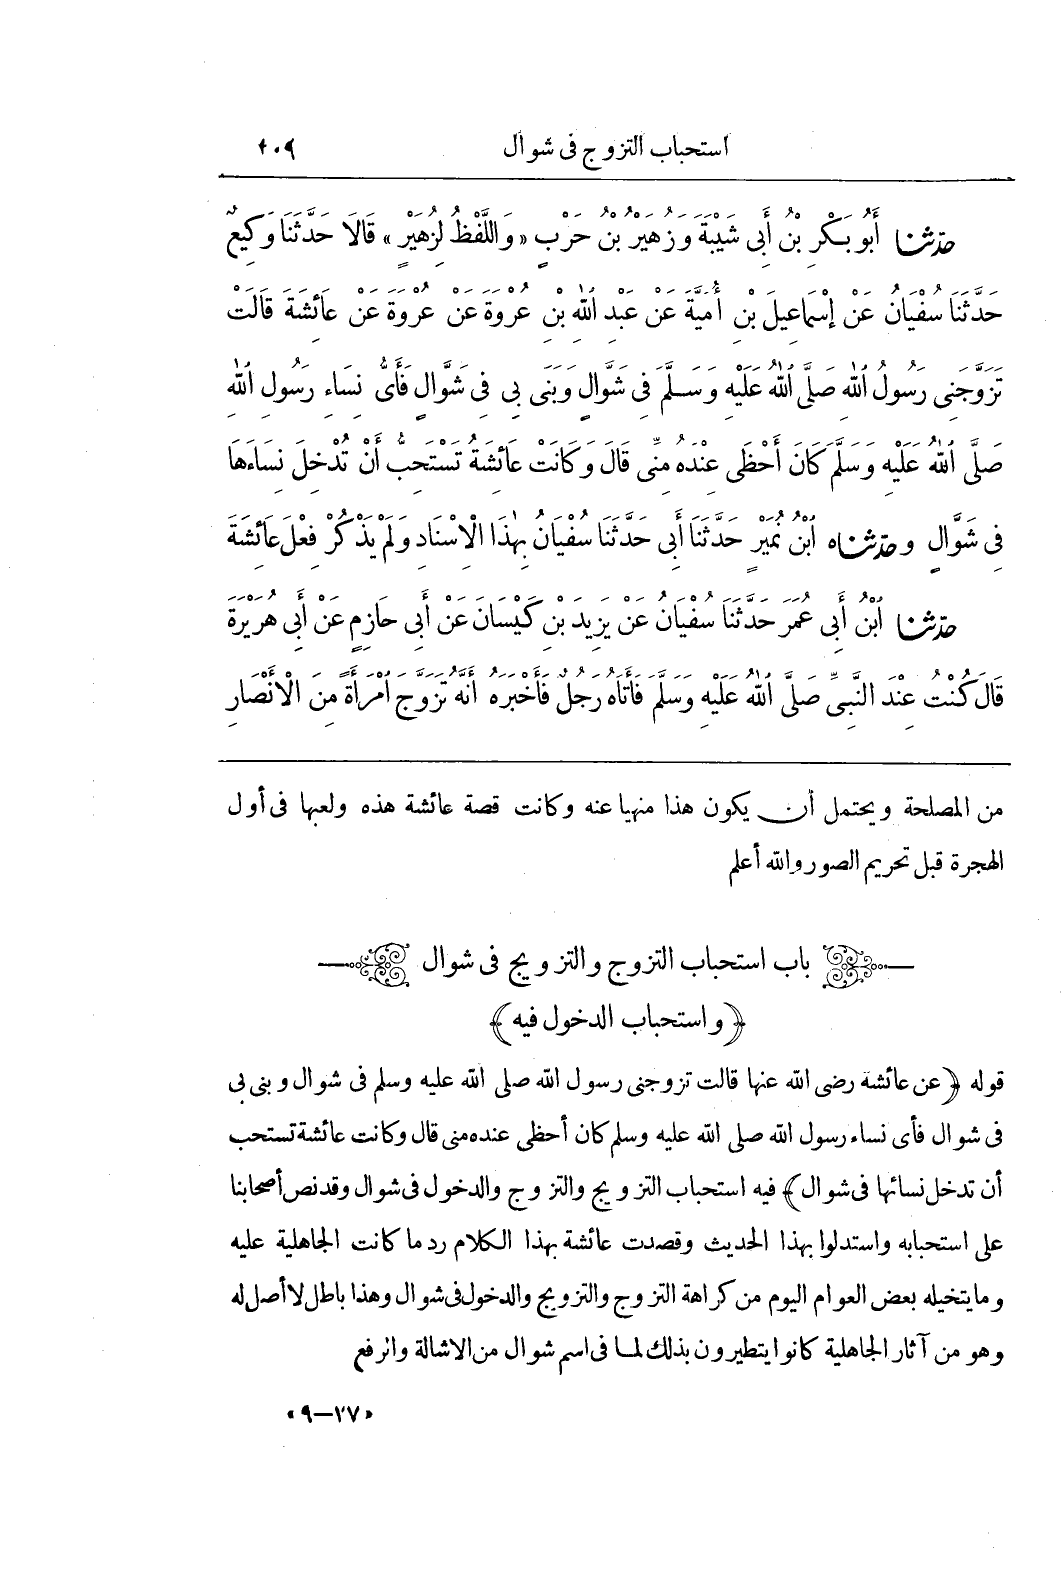 استحباب التزوج فى شوال ٢٠٩
حدثنا أَبُو بَكْرِ بْنُ أَبِى شَيْبَةَ وَزُهَيْرُ بْنُ حَرْبٍ «وَاللَّفْظُ لِزُهَيْرٍ» قَالَا حَدَّثَنَا وَكِيعٌ
حَدَّثَنَا سُفْيَانُ عَنْ إِسْمَاعِيلَ بْنِ أُمَيَّةَ عَنْ عَبْدِ اللهِ بْنِ عُرْوَةَ عَنْ عُرْوَةَ عَنْ عَائِشَةَ قَالَتْ
تَزَوَّجَنِى رَسُولُ اللهِ صَلَّى اللهُ عَلَيْهِ وَسَلَّمَ فِى شَوَّالٍ وَبَنَى بِى فِى شَوَّالٍ فَأَىُّ نِسَاءِ رَسُولِ اللهِ
صَلَّى اللهُ عَلَيْهِ وَسَلَّمَ كَانَ أَحْظَى عِنْدَهُ مِنِّى قَالَ وَكَانَتْ عَائِشَةُ تَسْتَحِبُّ أَنْ تُدْخِلَ نِسَاءَهَا
فِى شَوَّالٍ وحدثناه ابْنُ نُمَيْرٍ حَدَّثَنَا أَبِى حَدَّثَنَا سُفْيَانُ بِهٰذَا الْإِسْنَادِ وَلَمْ يَذْكُرْ فِعْلَ عَائِشَةَ
حدثنا ابْنُ أَبِى عُمَرَ حَدَّثَنَا سُفْيَانُ عَنْ يَزِيدَ بْنِ كَيْسَانَ عَنْ أَبِى حَازِمٍ عَنْ أَبِى هُرَيْرَةَ
قَالَ كُنْتُ عِنْدَ النَّبِىِّ صَلَّى اللهُ عَلَيْهِ وَسَلَّمَ فَأَتَاهُ رَجُلٌ فَأَخْبَرَهُ أَنَّهُ تَزَوَّجَ امْرَأَةً مِنَ الْأَنْصَارِ
من المصلحة ويحتمل أن يكون هذا منهيا عنه وكانت قصة عائشة هذه ولعبها فى أول
الهجرة قبل تحريم الصور والله أعلم
باب استحباب التزوج والتزويج فى شوال
﴿واستحباب الدخول فيه﴾
قوله ﴿عن عائشة رضى الله عنها قالت تزوجنى رسول الله صلى الله عليه وسلم فى شوال وبنى بى
فى شوال فأى نساء رسول الله صلى الله عليه وسلم كان أحظى عنده منى قال وكانت عائشة تستحب
أن تدخل نسائها فى شوال﴾ فيه استحباب التزويج والتزوج والدخول فى شوال وقد نص أصحابنا
على استحبابه واستدلوا بهذا الحديث وقصدت عائشة بهذا الكلام رد ما كانت الجاهلية عليه
وما يتخيله بعض العوام اليوم من كراهة التزوج والتزويج والدخول فى شوال وهذا باطل لا أصل له
وهو من آثار الجاهلية كانوا يتطيرون بذلك لما فى اسم شوال من الاشالة والرفع
«٢٧–٩»